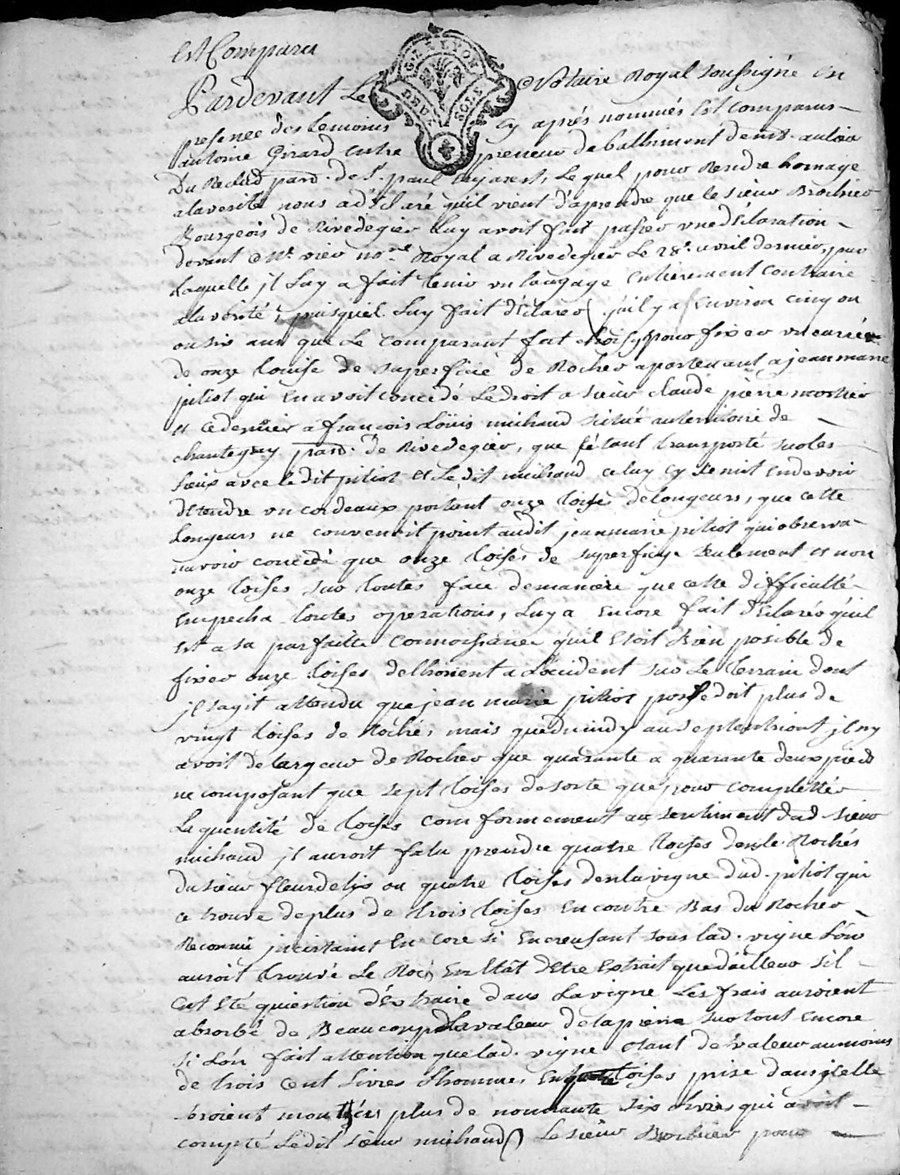 Est Comparu
Pardevant Le Notaire Royal soussigné en
GLE LYON
DEUX SOLS
presence des temoins cy aprés nommés Est Comparus
antoine Girard entre preneur de battiment demt. au lieu
Du par. de St. paul en Jarest, Le quel pour Rendre homage
alaverité nous adéclaré quil vient d'aprendre que le sieur Brochier
Bourgeois de Rivedegier luy avoit fait passer une déClaration
devant Me. vier nore. Royal a Rivedegier Le 28e. avril dernier, par
Laquelle jl Luy a fait tenir un langage Entierement Contraire
alavérité puisquil Luy fait déClarer quil y a Environ cinq ou
ou six ans que Le Comparant fut choisy pour fixer un cariére
de onze toise de superficié de Rocher apartenant a jean marie
pitiot qui En avoit concedé Le droit a sieur claude pierre mortier
et Ce dernier a françois Loüis michaud situé au teritoire de
chantegray par. de Rivedegier, que sétant transporté sur les
Lieux avec ledit pitiot et Le dit michaud, celuy cy se mit En devoir
détendre un cordeaux portant onze toises de longeurs, que cette
Longeurs ne convenoit point audit jean marie pitiot qui observa
navoir concédé que onze toises de superficie seulement et non
onze toises sur toutes face de maniere que cette difficulté
Empecha toutes operations, Luy a Encore fait déClarer quil
Est a sa parfaitte Connoissance quil Etoit Bien posible de
fixer onze toises de lhorient a Loccident sur Le terrain dont
jl sagit attendu que jean marie pitiot possedoit plus de
vingt toises de Rocher mais que du midy au septentriont jl ny
avoit de largeur de Rocher que quarante a quarante deux pieds
ne composant que sept toises de sorte que pour completter
La quentité de toises comformement au sentiment dud. sieur
michaud jl auroit falu prendre quatre toises den le Rochés
du sieur fleurdelix ou quatre toises den la vigne dud. pitiot qui
ce trouve de plus de trois toises En contre Bas du Rocher
Reconnu jncertaint En core si En creusant sous lad. vigne Lon
auroit trouvé Le Roc En Etât détre Extrait que d'ailleur sil
Eut Eté question déxtraire dans la vigne Les frais auroient
absorbé de Beaucoup La valeur de la pierre sur tout Encore
si Lon fait attention que lad. vigne Etant de valeur au moins
de trois cent Livres toises prise dans jcelle
seroient montées plus de nonnante six Livres qui avoit
compté Ledit sieur michaud, Le sieur Brochier pour